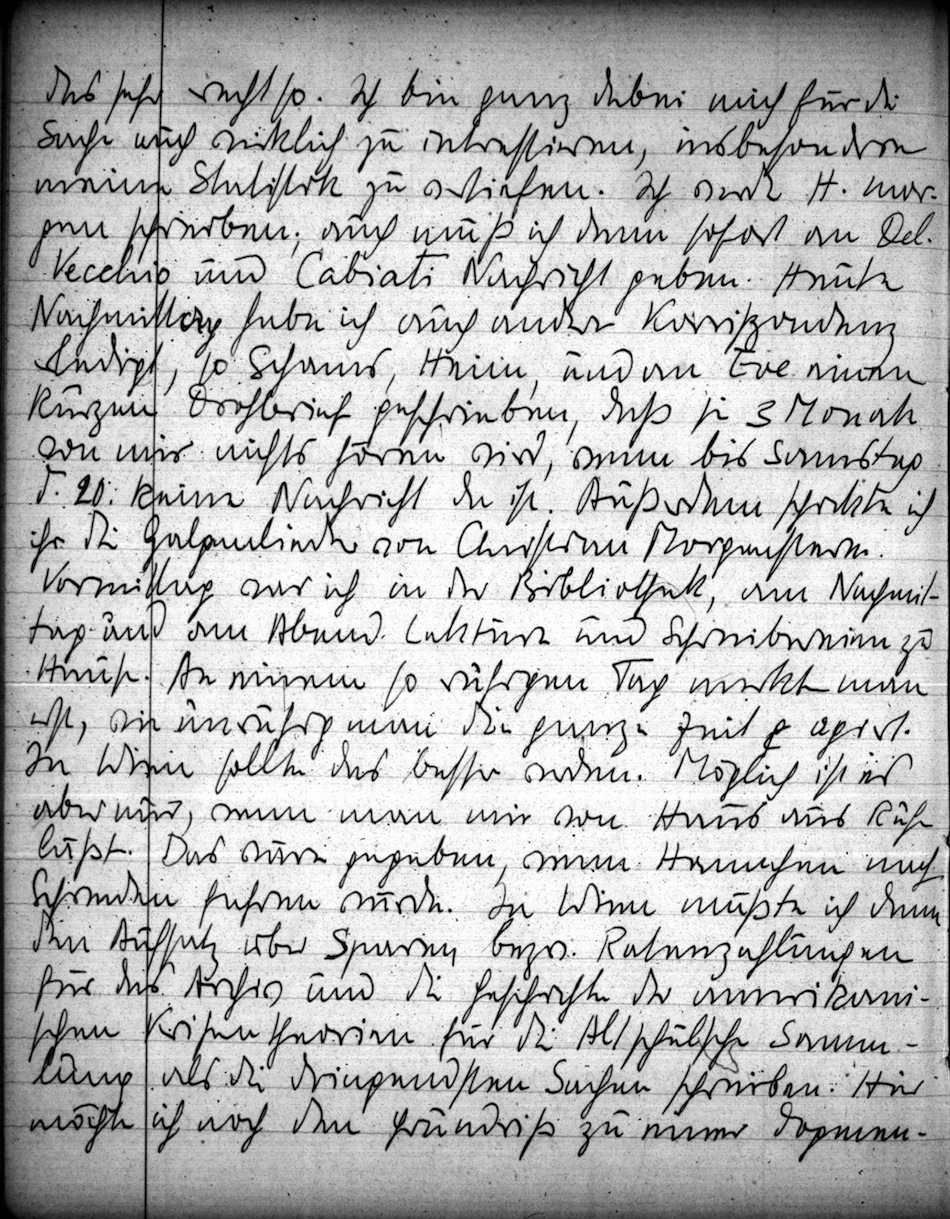 das sehr recht so. Ich bin ganz dabei mich für die
Sache auch wirklich zu intressieren, insbesondere
meine Statistik zu vertiefen. Ich werde H. mor-
gen schreiben; auch muß ich dann sofort an Del.
Vecchio und Cabiati Nachricht geben. Heute
Nachmittag habe ich auch andere Korrespondenz
erledigt, so Schams, Heim, und an Eve einen
kurzen Drohbrief geschrieben, daß sie 3 Monate
von mir nichts hören wird, wenn bis Samstag
d. 20. keine Nachricht da ist. Außerdem schickte ich
ihr die Galgenlieder von Christian Morgenstern.
Vormittag war ich in der Bibliothek, am Nachmit-
tag und am Abend Lektüre und Schreibereien zu
Hause. An einem so ruhigen Tag merkt man
erst, wie unruhig man die ganze Zeit agiert.
In Wien sollte das besser werden. Möglich ist es
aber nur, wenn man mir von Haus aus Ruhe
läßt. Das wäre gegeben, wenn nach
Schweden fahren würde. In Wien müßte ich dann
den Aufsatz über Sparen, bezw. Ratenzahlungen
für das Archiv und die Geschichte der amerikani-
schen Krisentheorien für die Altschulsche Samm-
lung als die dringendsten Sachen schreiben. Hier
möchte ich noch den Grundriß zu einer Dogmen-